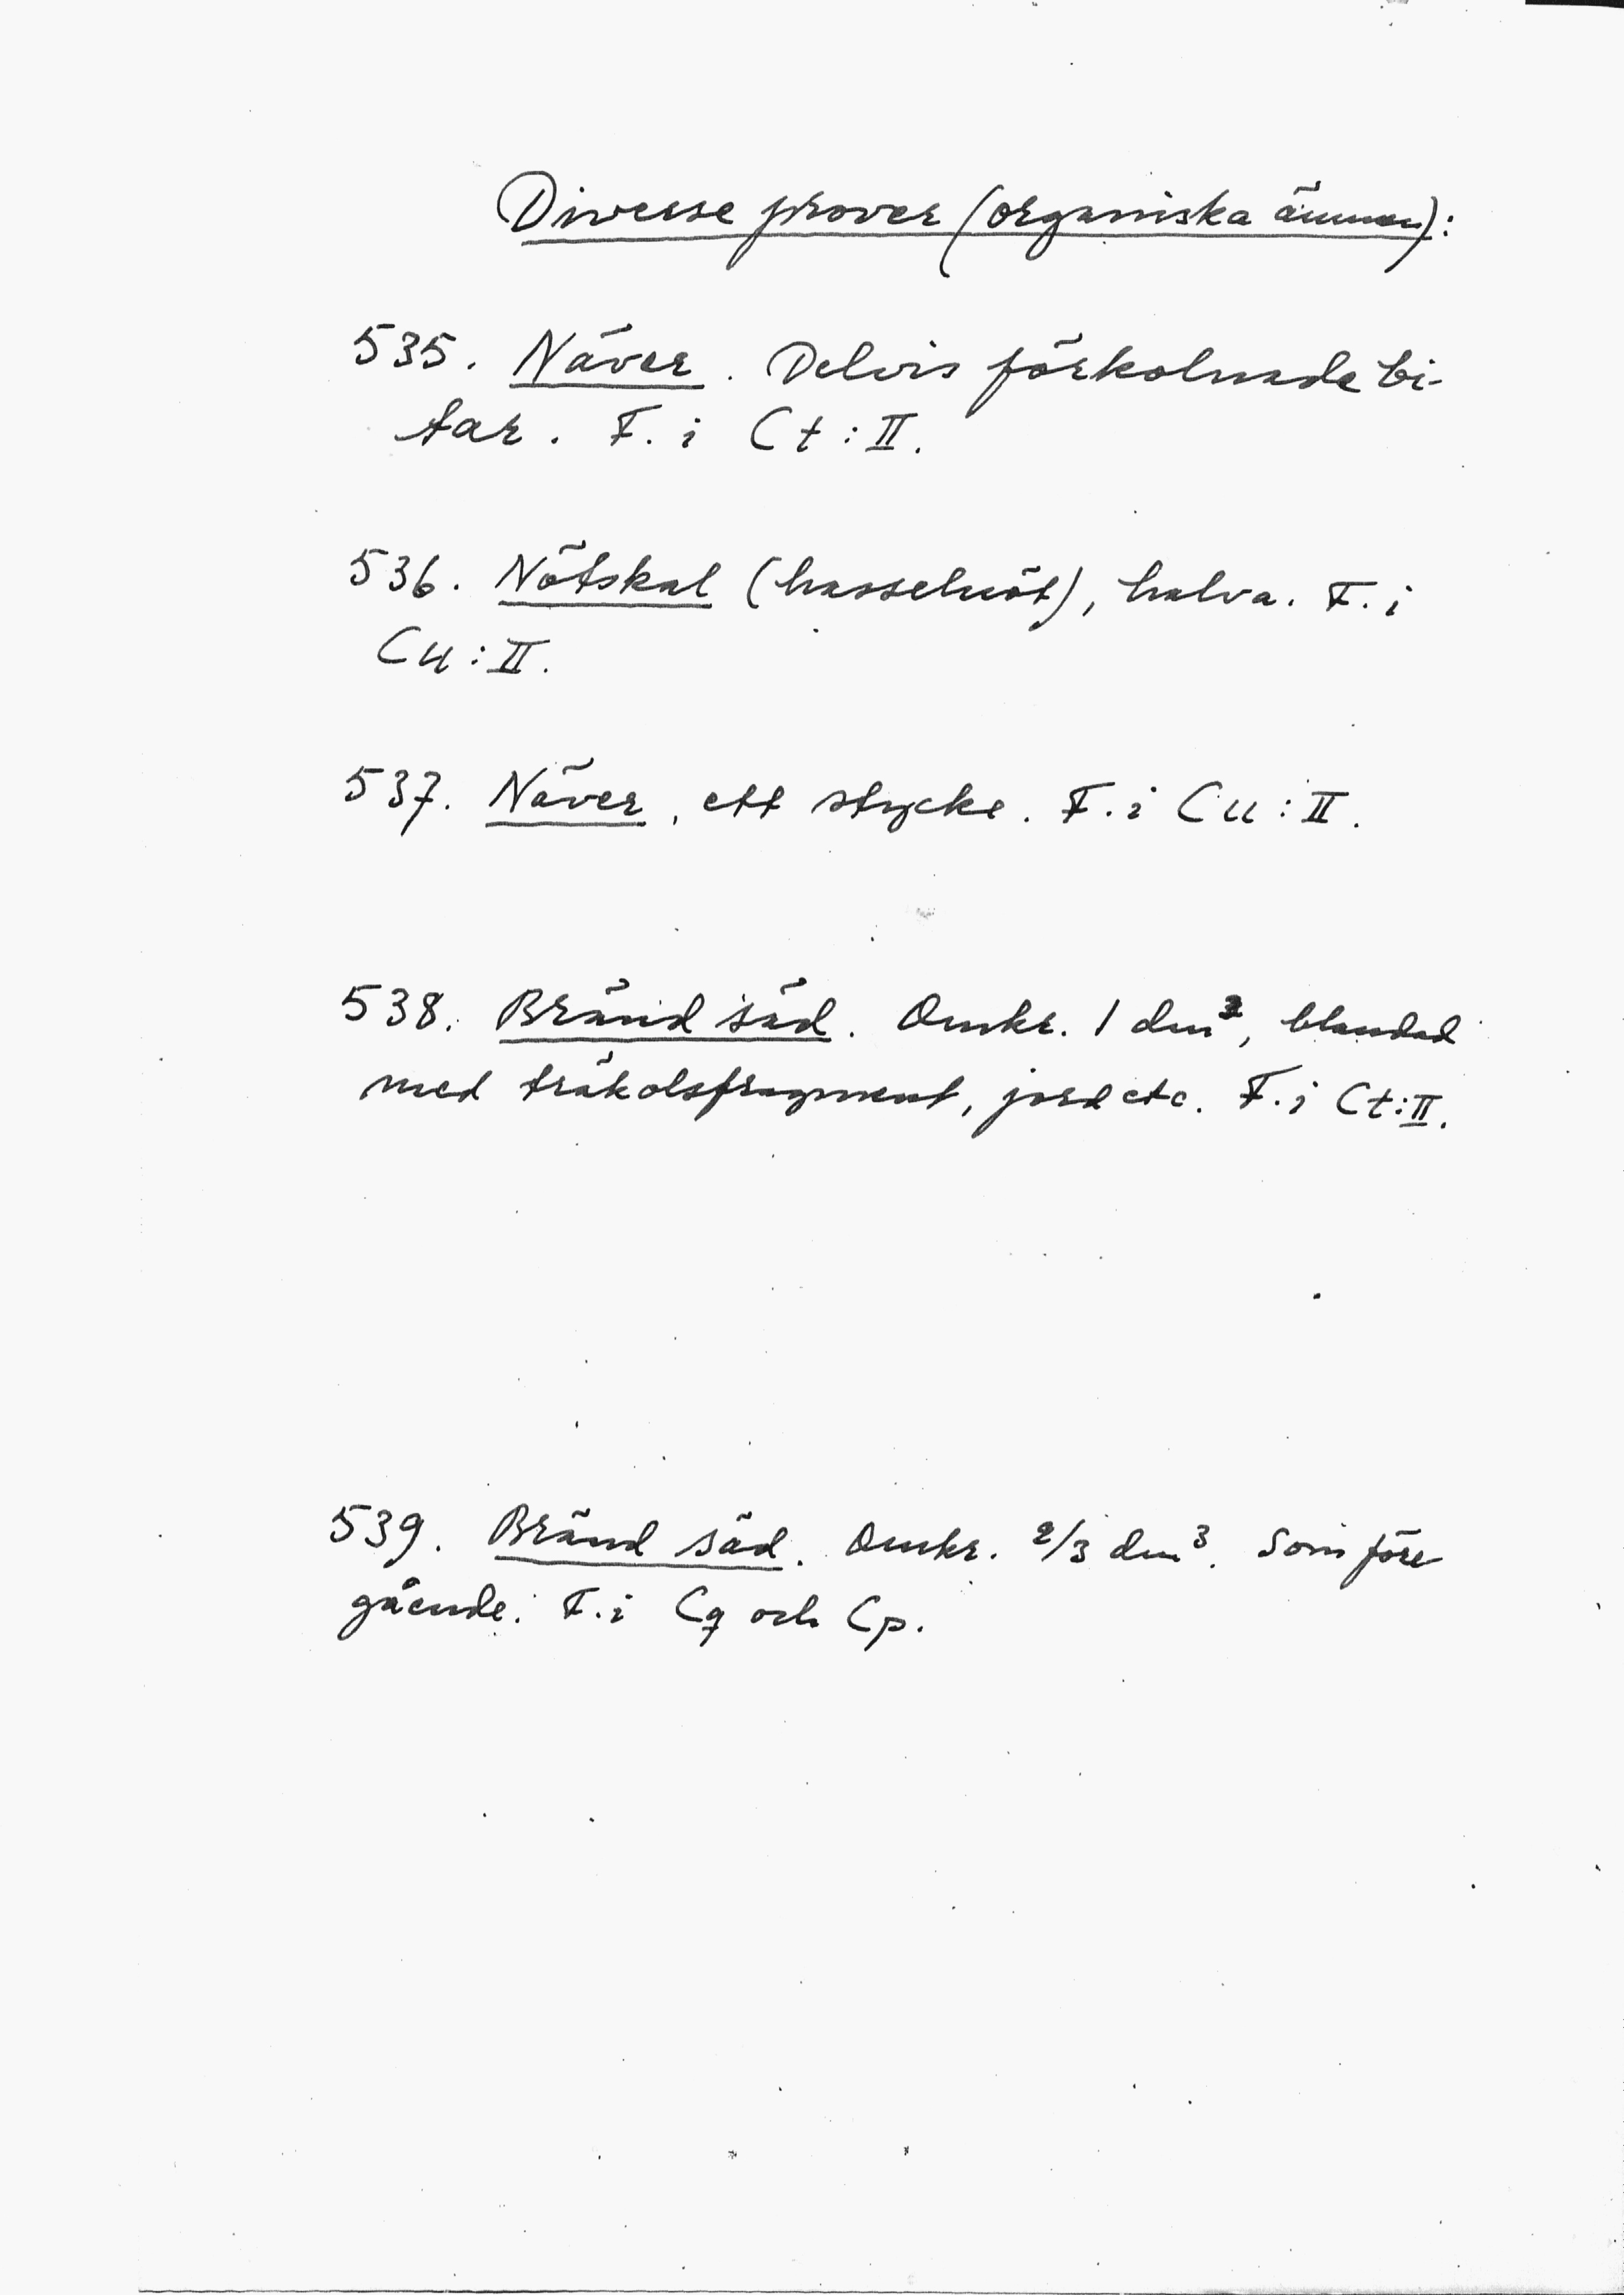 Diverse prover (organiska ämnen):
535. Näver. Delvis förkolnade bi-
tar. F. i Ct:II.
536. Nötskal (hasselnöt), halva. F. i
Cu:II.
537. Näver, ett stycke. F. i Cu:II.
538. Bränd säd. Omkr. 1 dm³, blandad
med träkolsfragment, jord etc. F. i Ct:II.
539. Bränd säd. Omkr. 2/3 dm³. Som före
gående. F. i Cq och Cp.